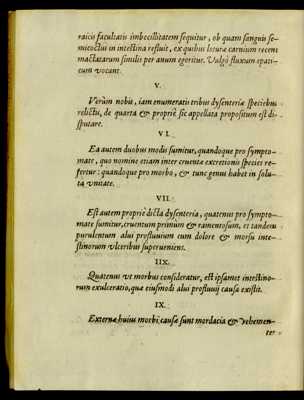 raicis facultatis imbecillitatem sequitur, ob quam sanguis se-
micoctus in intestina refluit, ex quibus loturæ carnium recens
mactatarum similis per anum egeritur. Vulgò fluxum epati-
cum vocant.
V.
Verùm nobis, iam enumeratis tribus dysenteriæ speciebus
relictis, de quarta & propriè sic appellata propositum est di-
sputare.
VI.
Ea autem duobus modis sumitur, quandoque pro sympto-
mate, quo nomine etiam inter cruentæ excretionis species re-
fertur: quandoque pro morbo, & tunc genus habet in solu-
ta vnitate.
VII.
Est autem propriè dicta dysenteria, quatenus pro sympto-
mate sumitur, cruentum primùm & ramentosum, et tandem
purulentum alui profluuium cum dolore & morsu inte-
stinorum vlceribus superueniens.
IIX.
Quatenus vt morbus consideratur, est ipsamet intestino-
rum exulceratio, quæ eiusmodi alui profluuij causa existit.
IX.
Externæ huius morbi causæ sunt mordacia & vehemen-
ter